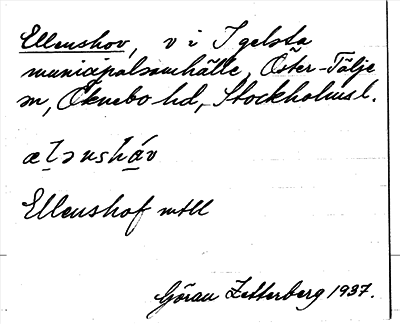 Ellenshov, v i Igelsta
municipalsamhälle, Öster-Tälje
sn, Öknebo hd, Stockholmsl.
ælənshàv
Ellenshof mtll
Göran Zetterberg 1937.